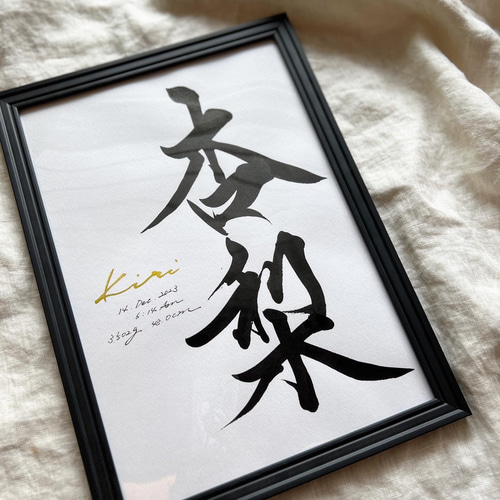 杏梨
Kiri
14. Dec. 2023
6:14
3502g 48.0cm